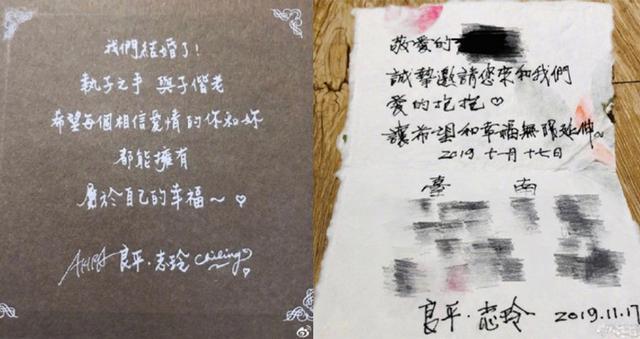 我們結婚了！
執子之手 與子偕老
希望每個相信愛情的你和妳
都能擁有
屬於自己的幸福～♡
AKIRA 良平·志玲 chiling♡
敬愛的
誠摯邀請您來和我們
愛的抱抱♡
讓希望和幸福無限延伸～
2019 十一月 十七日
臺 南
良平·志玲 2019.11.17